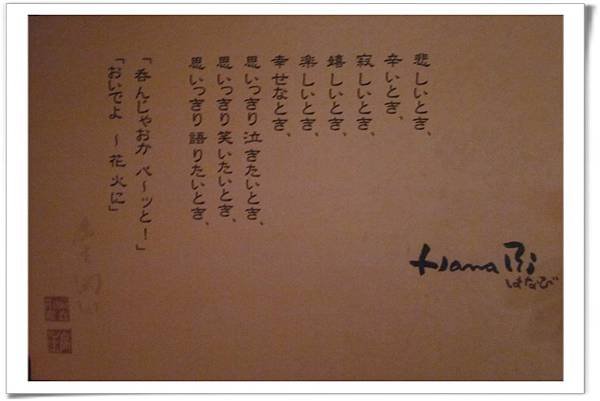 悲しいとき、
辛いとき、
寂しいとき、
嬉しいとき、
楽しいとき、
幸せなとき、
思いっきり泣きたいとき、
思いっきり笑いたいとき、
思いっきり語りたいとき、
「呑んじゃおか ペ〜ッと！」
「おいでよ 〜花火に」
Hana Bi
はなび